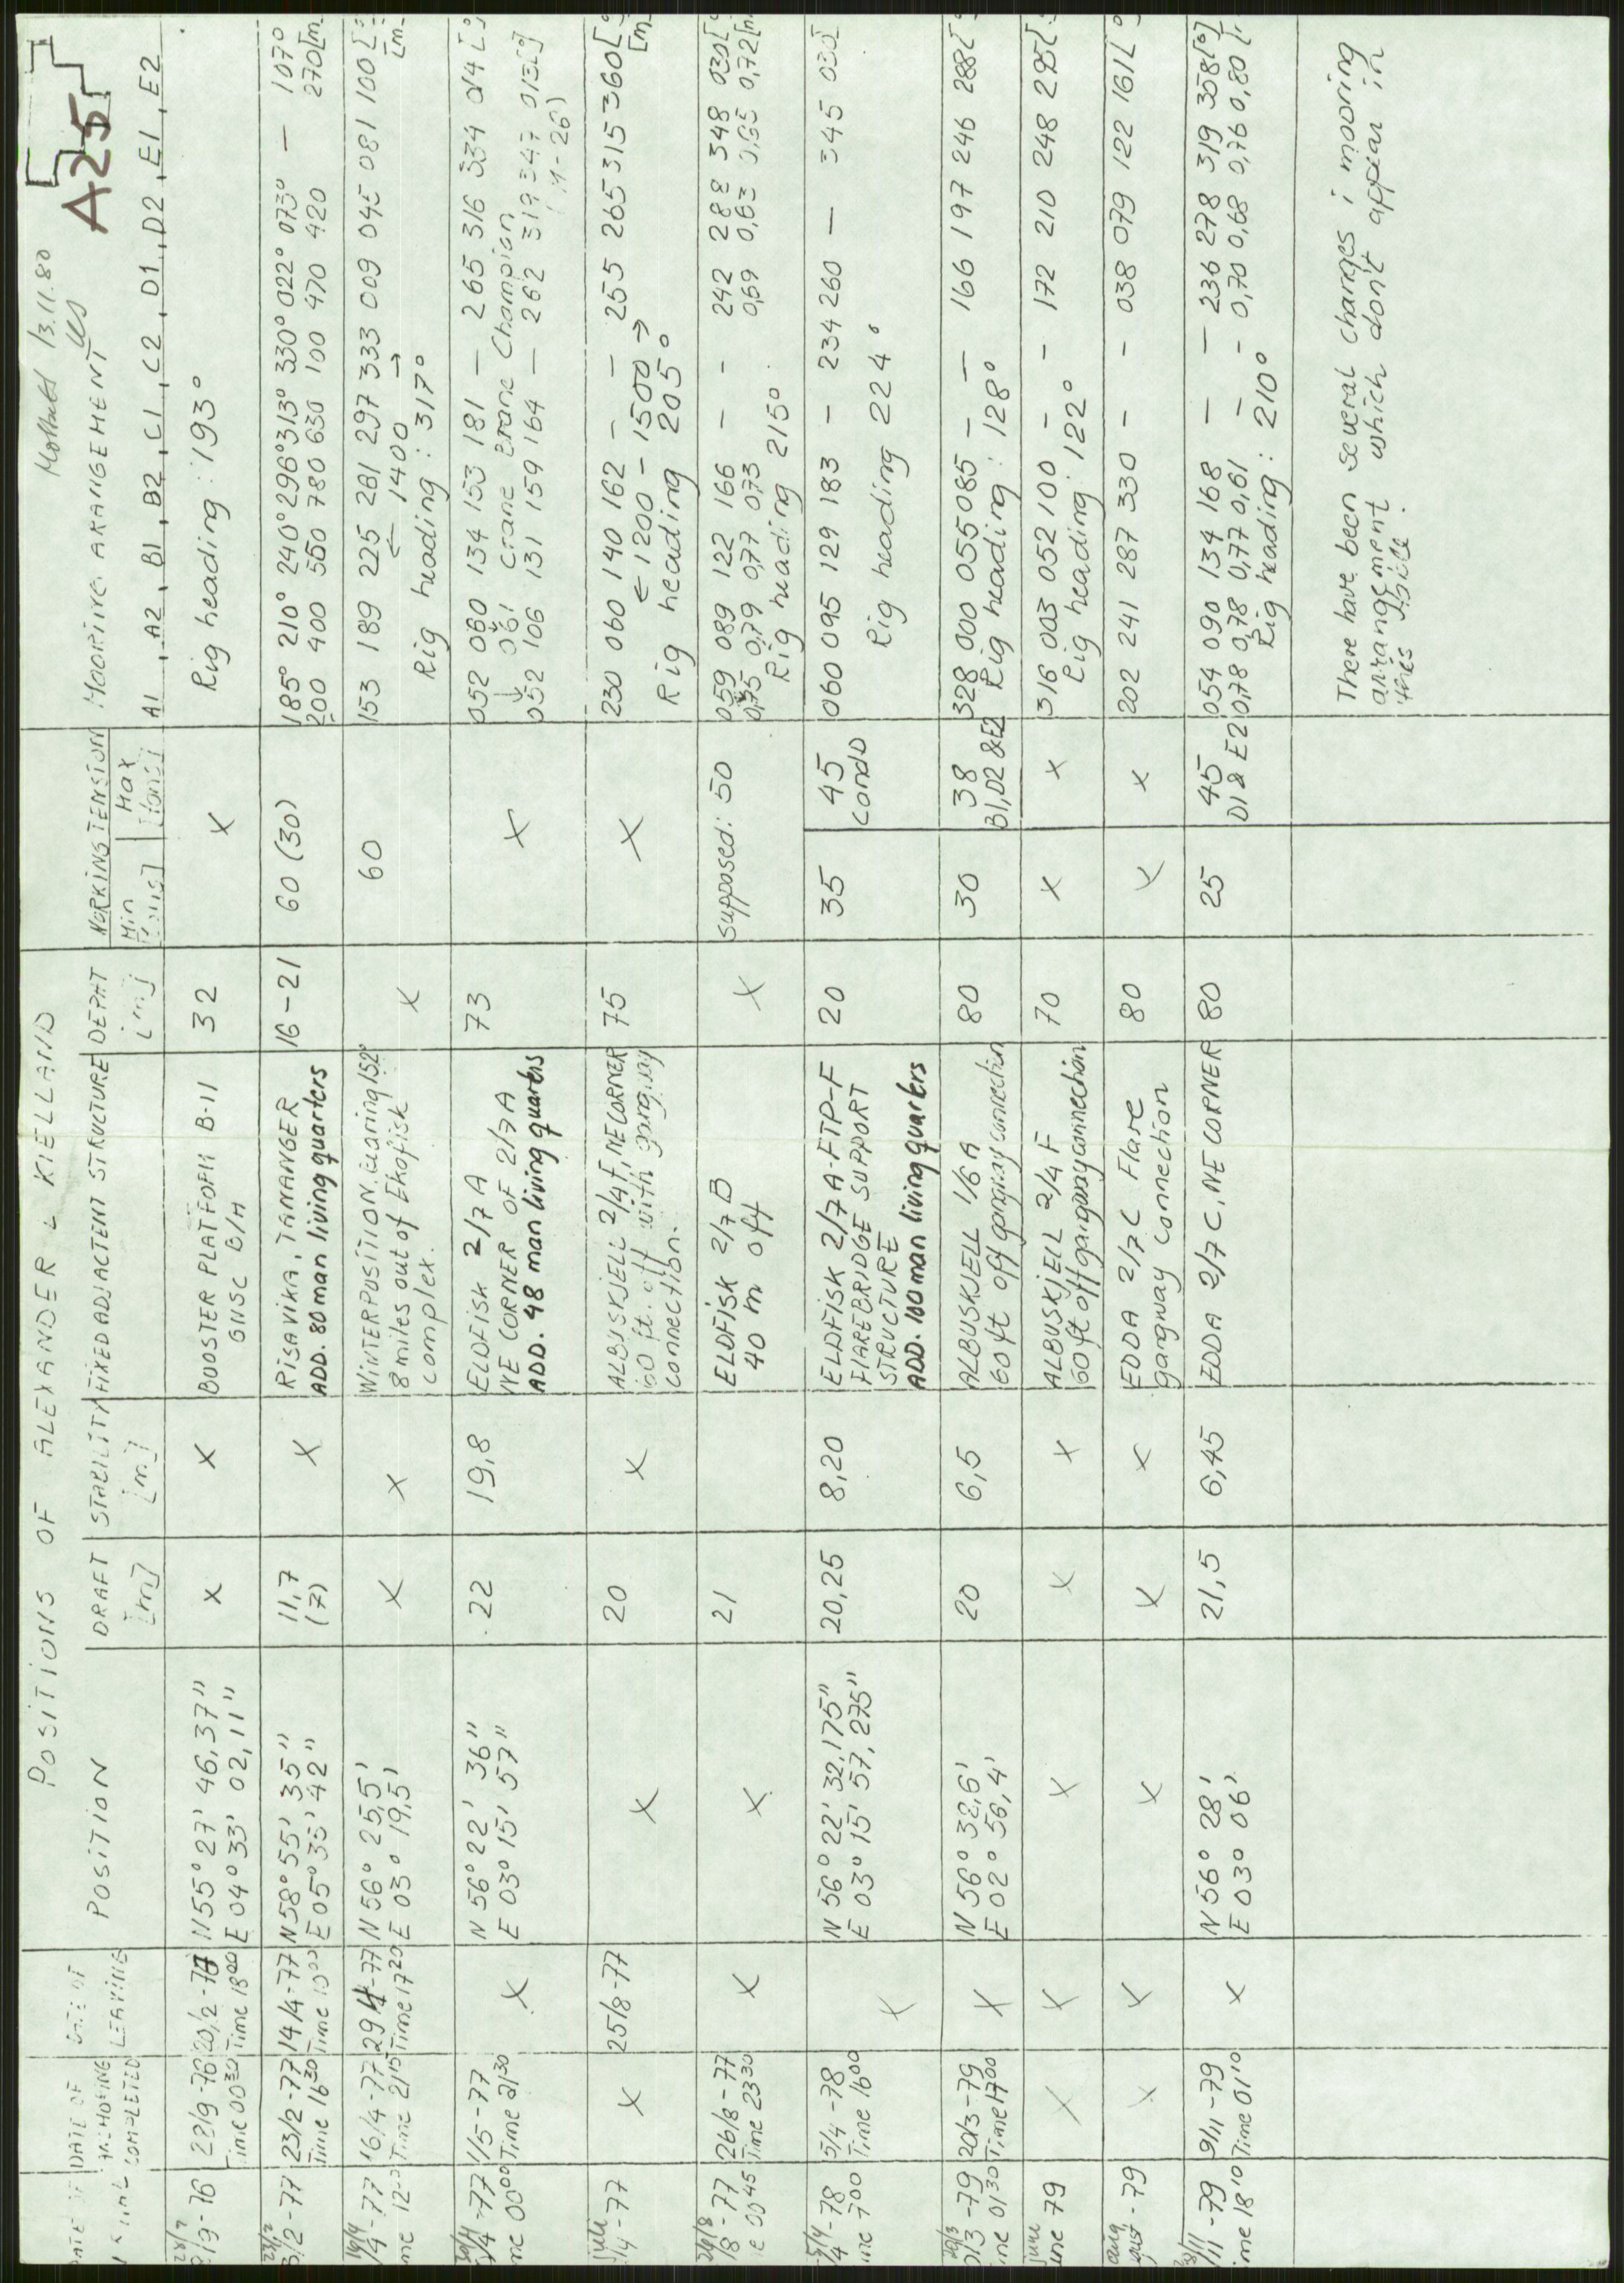 A25
Mottatt 13.11.80
POSITIONS OF ALEXANDER L KIELLAND
DATE OF
DATE OF ANCHORING COMPLETED
DATE OF LEAVING
POSITION
DRAFT [m]
STABILITY [m]
FIXED ADJACTENT STRUCTURE
DEPHT [m]
WORKING TENSION
Min [tons]
Max [tons]
MOORING ARANGEMENT
A1, A2, B1, B2, C1, C2, D1, D2, E1, E2
22/9-76
Time 00 30
20/2-77
Time 18 00
N 55° 27' 46,37"
E 04° 33' 02,11"
X
X
BOOSTER PLATFORM B-11
GNSC B/H
32
X
Rig heading: 193°
2-77
23/2-77
Time 16 30
14/4-77
N 58° 55' 35"
E 05° 35' 42"
11,7
(7)
X
RISAVIKA, TANANGER
ADD. 80 man living quarters
16-21
60 (30)
185° 210° 240° 296° 313° 330° 022° 073° — 107°
200 400 550 780 630 100 470 420 270 [m
16/4
/4-77
16/4-77
Time 21 15
29/4-77
Time 17 20
N 56° 25,5'
E 03° 19,5'
X
X
WINTERPOSITION, bearing 152°
8 miles out of Ekofisk
complex.
X
60
153 189 225 281 297 333 009 045 081 100 [
← 1400 → [m
Rig heading: 317°
/4-77
00 00
1/5-77
Time 21 30
X
N 56° 22' 36"
E 03° 15' 57"
22
19,8
ELDFISK 2/7 A
NE CORNER OF 2/7 A
ADD. 48 man living quarters
73
X
052 080 134 153 181 — 265 316 334 014 [
061 Crane Crane Champion
052 106 131 159 164 — 262 319 347 013 [°]
-77
X
25/8-77
X
20
X
ALBUSKJELL 2/4 F, NE CORNER
60 ft. off with gangway
connection.
75
X
230 060 140 162 — — 255 265 315 360 [
← 1200 - 1500 → [m
Rig heading 205°
26/8
/8-77
00 45
26/8-77
Time 23 30
X
X
21
ELDFISK 2/7 B
40 m off
X
Supposed: 50
059 089 122 166 - - 242 288 348 030 [
0,75 0,79 0,77 0,73 0,69 0,63 0,65 0,72 [m
Rig heading 215°
5/4
4-78
7 00
5/4-78
Time 16 00
X
N 56° 22' 32,175"
E 03° 15' 57,275"
20,25
8,20
ELDFISK 2/7 A-FTP-F
FLAREBRIDGE SUPPORT
STRUCTURE
ADD. 100 man living quarters
20
35
45
Cond
060 095 129 183 - 234 260 — 345 030 [
Rig heading 224°
20/3
/3-79
01 30
20/3-79
Time 17 00
X
N 56° 32,6'
E 02° 56,4'
20
6,5
ALBUSKJELL 1/6 A
60 ft off gangway connection
80
30
38
B1, D2 & E2
328 000 055 085 — — 166 197 246 288 [
Rig heading: 128°
june
-79
X
X
X
X
X
ALBUSKJELL 2/4 F
60 ft off gangway connection
70
X
X
316 003 052 100 - - 172 210 248 295 [
Rig heading: 122°
-79
X
X
X
X
X
EDDA 2/7 C Flare
gangway connection
80
X
X
202 241 287 330 - - 038 079 122 161 [
8/11
/11-79
18 10
9/11-79
Time 01 10
X
N 56° 28'
E 03° 06'
21,5
6,45
EDDA 2/7 C, NE CORNER
80
25
45
D1 & E2
054 090 134 168 — — 236 278 319 358 [°]
0,78 0,78 0,77 0,61 — - 0,70 0,68 0,76 0,80
Rig heading: 210°
There have been several changes i mooring
arrangement which don't appear in
this